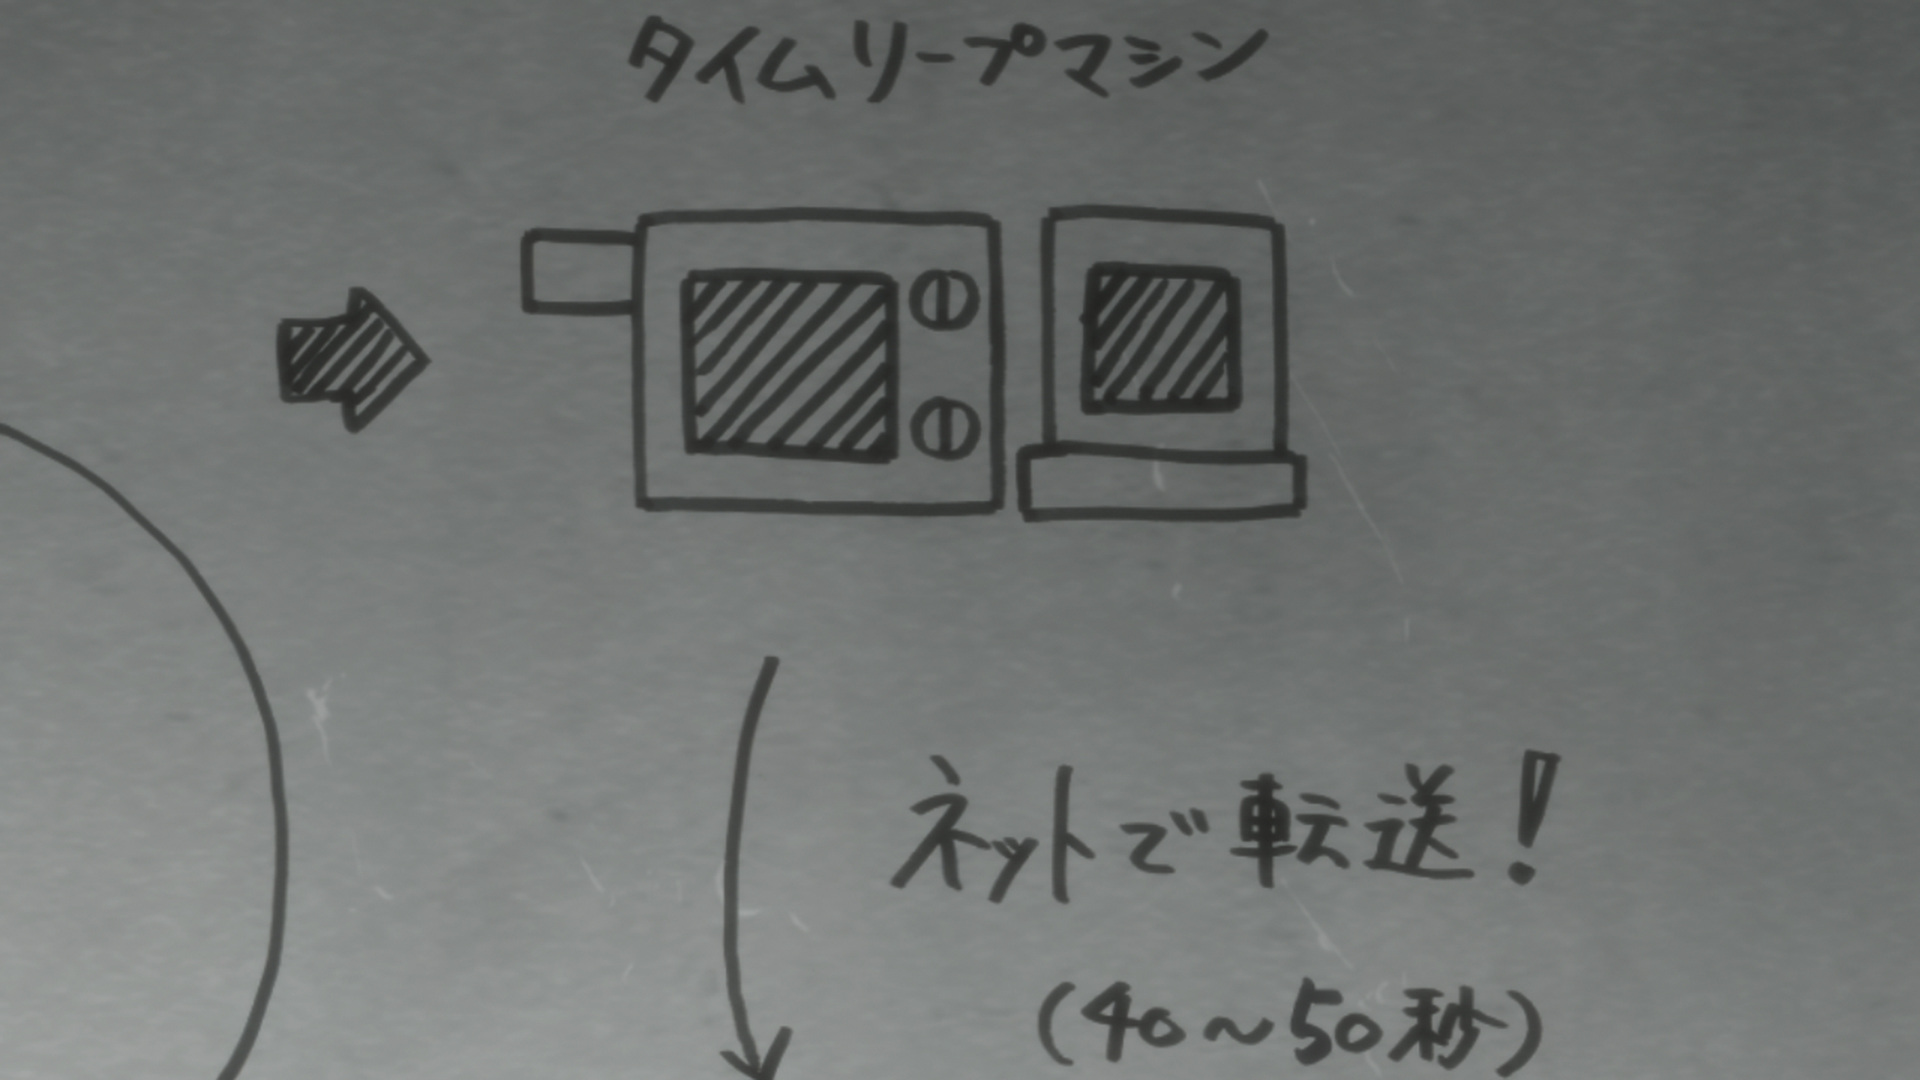 タイムリープマシン
ネットで転送!
(40~50秒)